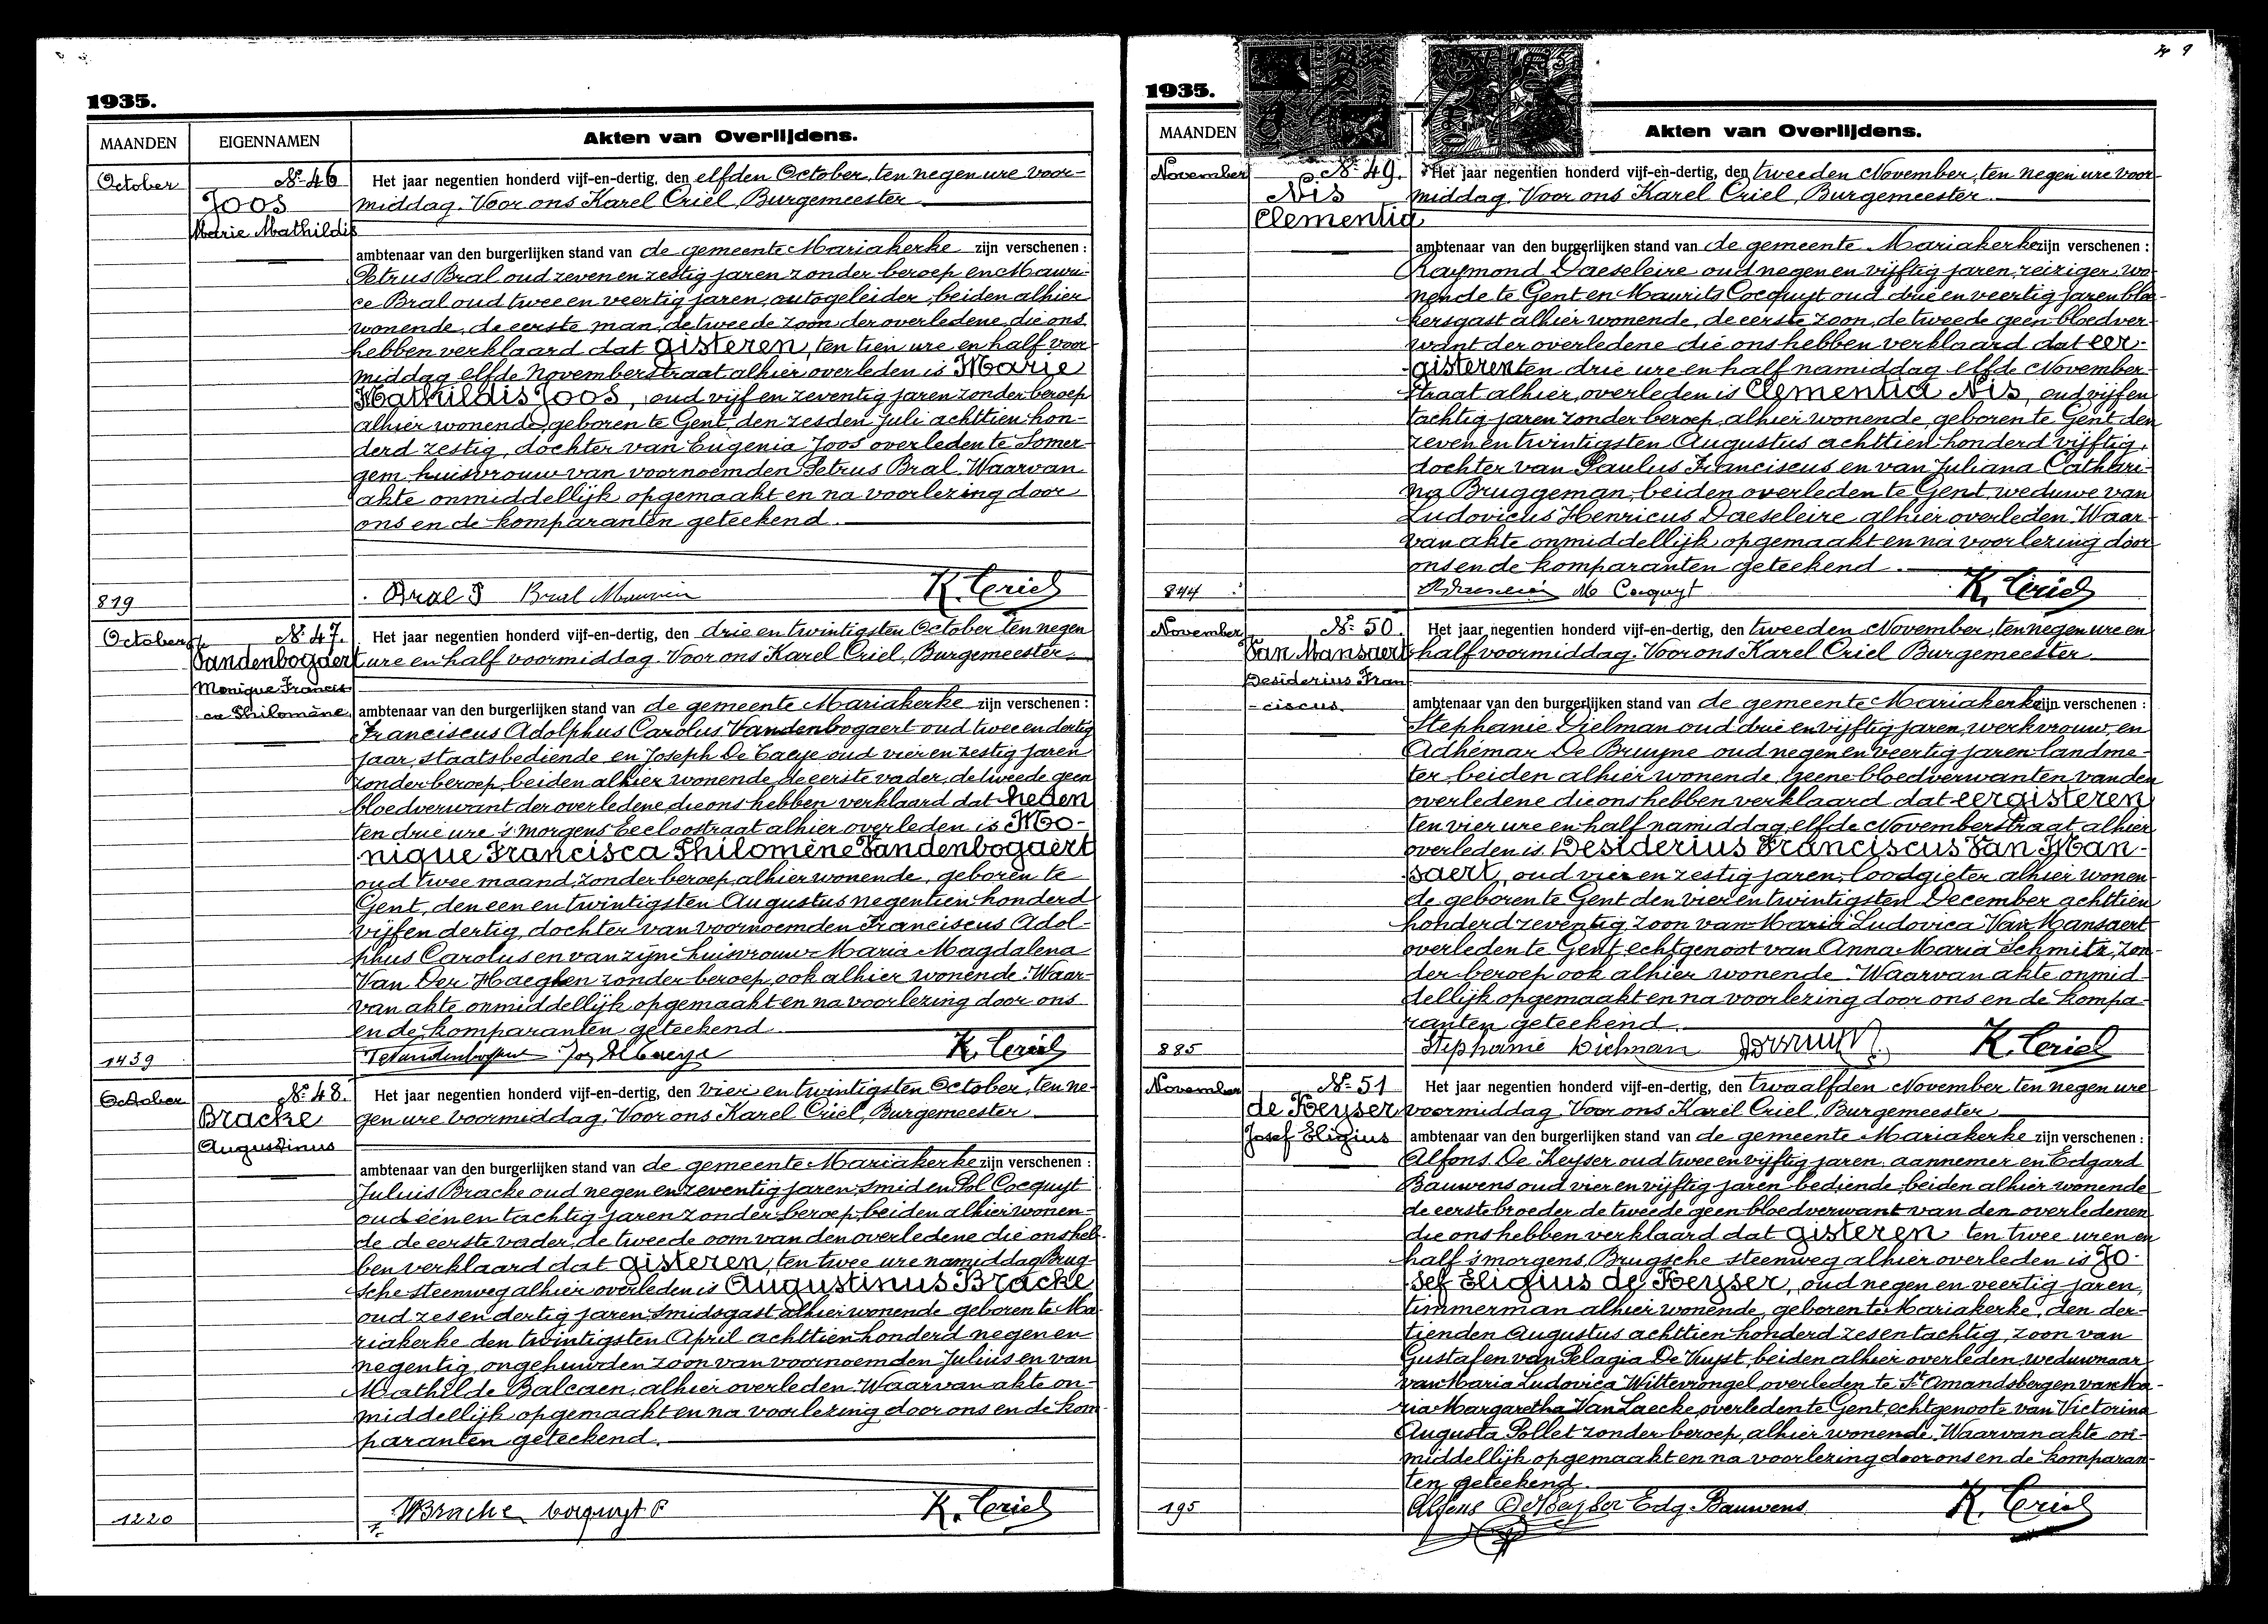 1935.
MAANDEN EIGENNAMEN Akten van Overlijdens.
October
№ 46
Joos
Marie Mathildis
Het jaar negentien honderd vijf-en-dertig, den elfden October, ten negen ure voor-
middag. Voor ons Karel Criel, Burgemeester
ambtenaar van den burgerlijken stand van de gemeente Mariakerke zijn verschenen :
Petrus Bral oud zeven en zestig jaren zonder beroep en Mauri-
ce Bral oud twee en veertig jaren, autogeleider, beiden alhier
wonende, de eerste man, de tweede zoon der overledene, die ons
hebben verklaard dat gisteren, ten tien ure en half voor
middag elfde Novemberstraat alhier overleden is Marie
Mathildis Joos, oud vijf en zeventig jaren zonder beroep
alhier wonende, geboren te Gent, den zesden Juli achttien hon-
derd zestig, dochter van Eugenia Joos overleden te Somer-
gem huisvrouw van voornoemden Petrus Bral. Waarvan
akte onmiddellijk opgemaakt en na voorlezing door
ons en de komparanten geteekend.
819
Bral P Bral Maurice K. Criel
October
№ 47.
Vandenbogaert
Monique Francis
ca Philomène
Het jaar negentien honderd vijf-en-dertig, den drie en twintigsten October ten negen
ure en half voormiddag. Voor ons Karel Criel, Burgemeester
ambtenaar van den burgerlijken stand van de gemeente Mariakerke zijn verschenen :
Franciscus Adolphus Carolus Vandenbogaert oud twee en dertig
jaar, staatsbediende en Joseph De Caeye oud vier en zestig jaren
zonder beroep, beiden alhier wonende, de eerste vader, de tweede geen
bloedverwant der overledene die ons hebben verklaard dat heden
ten drie ure 's morgens Eecloostraat alhier overleden is Mo-
nique Francisca Philomène Vandenbogaert
oud twee maand, zonder beroep, alhier wonende, geboren te
Gent, den een en twintigsten Augustus negentien honderd
vijf en dertig, dochter van voornoemden Franciscus Adol-
phus Carolus en van zijne huisvrouw Maria Magdalena
Van Der Haeghen zonder beroep, ook alhier wonende. Waar-
van akte onmiddellijk opgemaakt en na voorlezing door ons
en de komparanten geteekend.
1439
Jos. De Caeye K. Criel
October
№ 48.
Bracke
Augustinus
Het jaar negentien honderd vijf-en-dertig, den vier en twintigsten October, ten ne-
gen ure voormiddag. Voor ons Karel Criel, Burgemeester
ambtenaar van den burgerlijken stand van de gemeente Mariakerke zijn verschenen :
Juluis Bracke oud negen en zeventig jaren, smid en Pol Cocquyt
oud één en tachtig jaren zonder beroep, beiden alhier wonen-
de de eerste vader, de tweede oom van den overledene die ons heb-
ben verklaard dat gisteren, ten twee ure namiddag Brug-
sche steenweg alhier overleden is Augustinus Bracke
oud zes en dertig jaren, smidsgast alhier wonende geboren te Ma-
riakerke den twintigsten April achttien honderd negen en
negentig, ongehuwden zoon van voornoemden Julius en van
Mathilde Balcaen, alhier overleden. Waarvan akte on-
middellijk opgemaakt en na voorlezing door ons en de kom-
paranten geteekend.
1220
Bracke Cocquyt P K. Criel
1935.
MAANDEN Akten van Overlijdens.
November
№ 49.
Nis
Clementia
Het jaar negentien honderd vijf-en-dertig, den tweeden November, ten negen ure voor-
middag. Voor ons Karel Criel, Burgemeester
ambtenaar van den burgerlijken stand van de gemeente Mariakerke zijn verschenen :
Raymond Daeseleire oud negen en vijftig jaren, reiziger, wo-
nende te Gent en Maurits Cocquyt oud drie en veertig jaren
alhier wonende, de eerste zoon, de tweede geen bloedver-
want der overledene die ons hebben verklaard dat eer-
gisteren ten drie ure en half namiddag elfde November-
straat alhier, overleden is Clementia Nis, oud vijf en
tachtig jaren zonder beroep, alhier wonende, geboren te Gent den
zeven en twintigsten Augustus achttien honderd vijftig,
dochter van Paulus Franciscus en van Juliana Cathari-
na Bruggeman, beiden overleden te Gent, weduwe van
Ludovicus Henricus Daeseleire alhier overleden. Waar-
van akte onmiddellijk opgemaakt en na voorlezing door
ons en de komparanten geteekend.
844
M Cocquyt K. Criel
November
№ 50.
Van Mansaert
Desiderius Fran
-ciscus
Het jaar negentien honderd vijf-en-dertig, den tweeden November, ten negen ure en
half voormiddag. Voor ons Karel Criel Burgemeester
ambtenaar van den burgerlijken stand van de gemeente Mariakerke zijn verschenen :
Stephanie Dielman oud drie en vijftig jaren, werkvrouw, en
Adhémar De Bruyne oud negen en veertig jaren landme-
ter, beiden alhier wonende, geene bloedverwanten van den
overledene die ons hebben verklaard dat eergisteren
ten vier ure en half namiddag, elfde Novemberstraat alhier
overleden is Desiderius Franciscus Van Man-
saert, oud vier en zestig jaren, loodgieter alhier wonen-
de geboren te Gent den vier en twintigsten December achttien
honderd zeventig, zoon van Maria Ludovica Van Mansaert
overleden te Gent, echtgenoot van Anna Maria Schmitz, zon-
der beroep ook alhier wonende. Waarvan akte onmid-
dellijk opgemaakt en na voorlezing door ons en de kompa-
ranten geteekend.
885
Stephanie Dielman K. Criel
November
№ 51
de Keyser
Josef Eligius
Het jaar negentien honderd vijf-en-dertig, den twaalfden November, ten negen ure
voormiddag. Voor ons Karel Criel, Burgemeester
ambtenaar van den burgerlijken stand van de gemeente Mariakerke zijn verschenen :
Alfons De Keyser oud twee en vijftig jaren, aannemer en Edgard
Bauwens oud vier en vijftig jaren bediende, beiden alhier wonende
de eerste broeder de tweede geen bloedverwant van den overledenen
die ons hebben verklaard dat gisteren ten twee uren en
half 's morgens, Brugsche steenweg alhier overleden is Jo-
sef Eligius de Keyser, oud negen en veertig jaren,
timmerman alhier wonende, geboren te Mariakerke, den der-
tienden Augustus achttien honderd zes en tachtig, zoon van
Gustaf en van Pelagia De Vuyst, beiden alhier overleden, weduwnaar
van Maria Ludovica Wittevrongel, overleden te St Amandsberg en van Ma-
ria Margaretha Van Laecke, overleden te Gent, echtgenoote van Victorina
Augusta Pollet zonder beroep, alhier wonende. Waarvan akte on-
middellijk opgemaakt en na voorlezing door ons en de komparan-
ten geteekend.
195
Alfons De Keyser Edg. Bauwens K. Criel